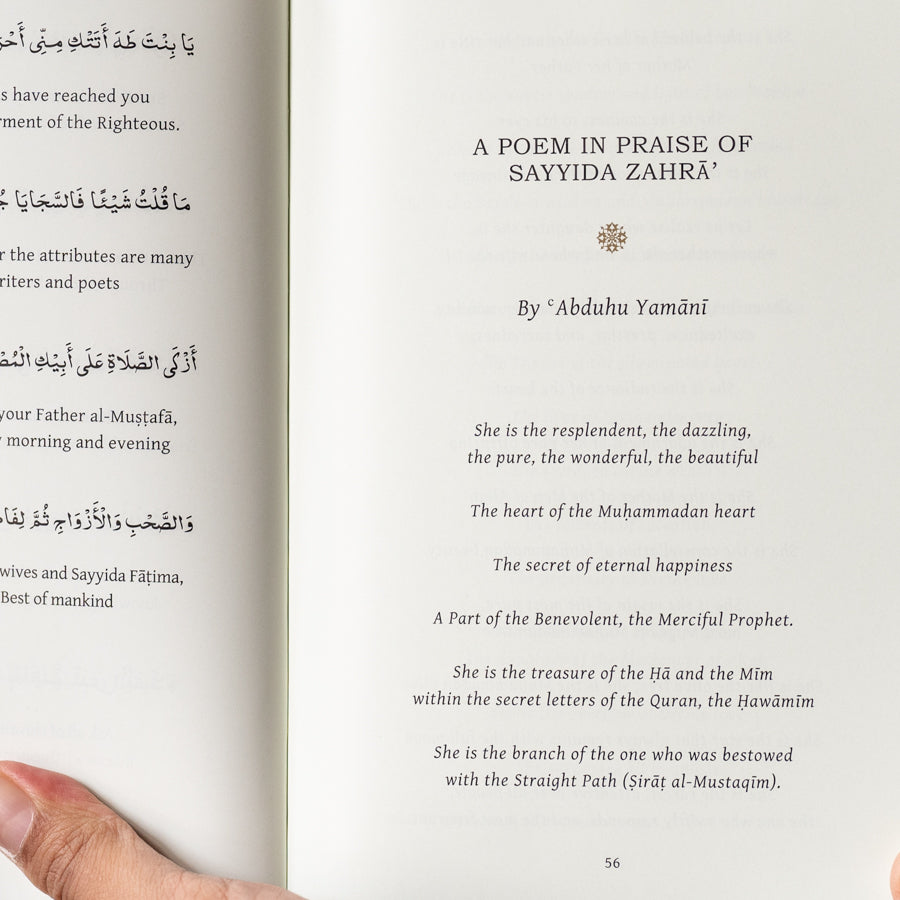 يَا بِنْتَ طَهَ أَتَتْكِ مِنِّي
s have reached you
rment of the Righteous.
مَا قُلْتُ شَيْئًا فَالسَّجَايَا
r the attributes are many
riters and poets
أَزْكَى الصَّلَاةِ عَلَى أَبِيْكِ
your Father al-Muṣṭafā,
morning and evening
وَالصَّحْبِ وَالْأَزْوَاجِ ثُمَّ
wives and Sayyida Fāṭima,
Best of mankind
A POEM IN PRAISE OF
SAYYIDA ZAHRĀ’
By ʿAbduhu Yamānī
She is the resplendent, the dazzling,
the pure, the wonderful, the beautiful
The heart of the Muḥammadan heart
The secret of eternal happiness
A Part of the Benevolent, the Merciful Prophet.
She is the treasure of the Ḥā and the Mīm
within the secret letters of the Quran, the Ḥawāmīm
She is the branch of the one who was bestowed
with the Straight Path (Ṣirāṭ al-Mustaqīm).
56